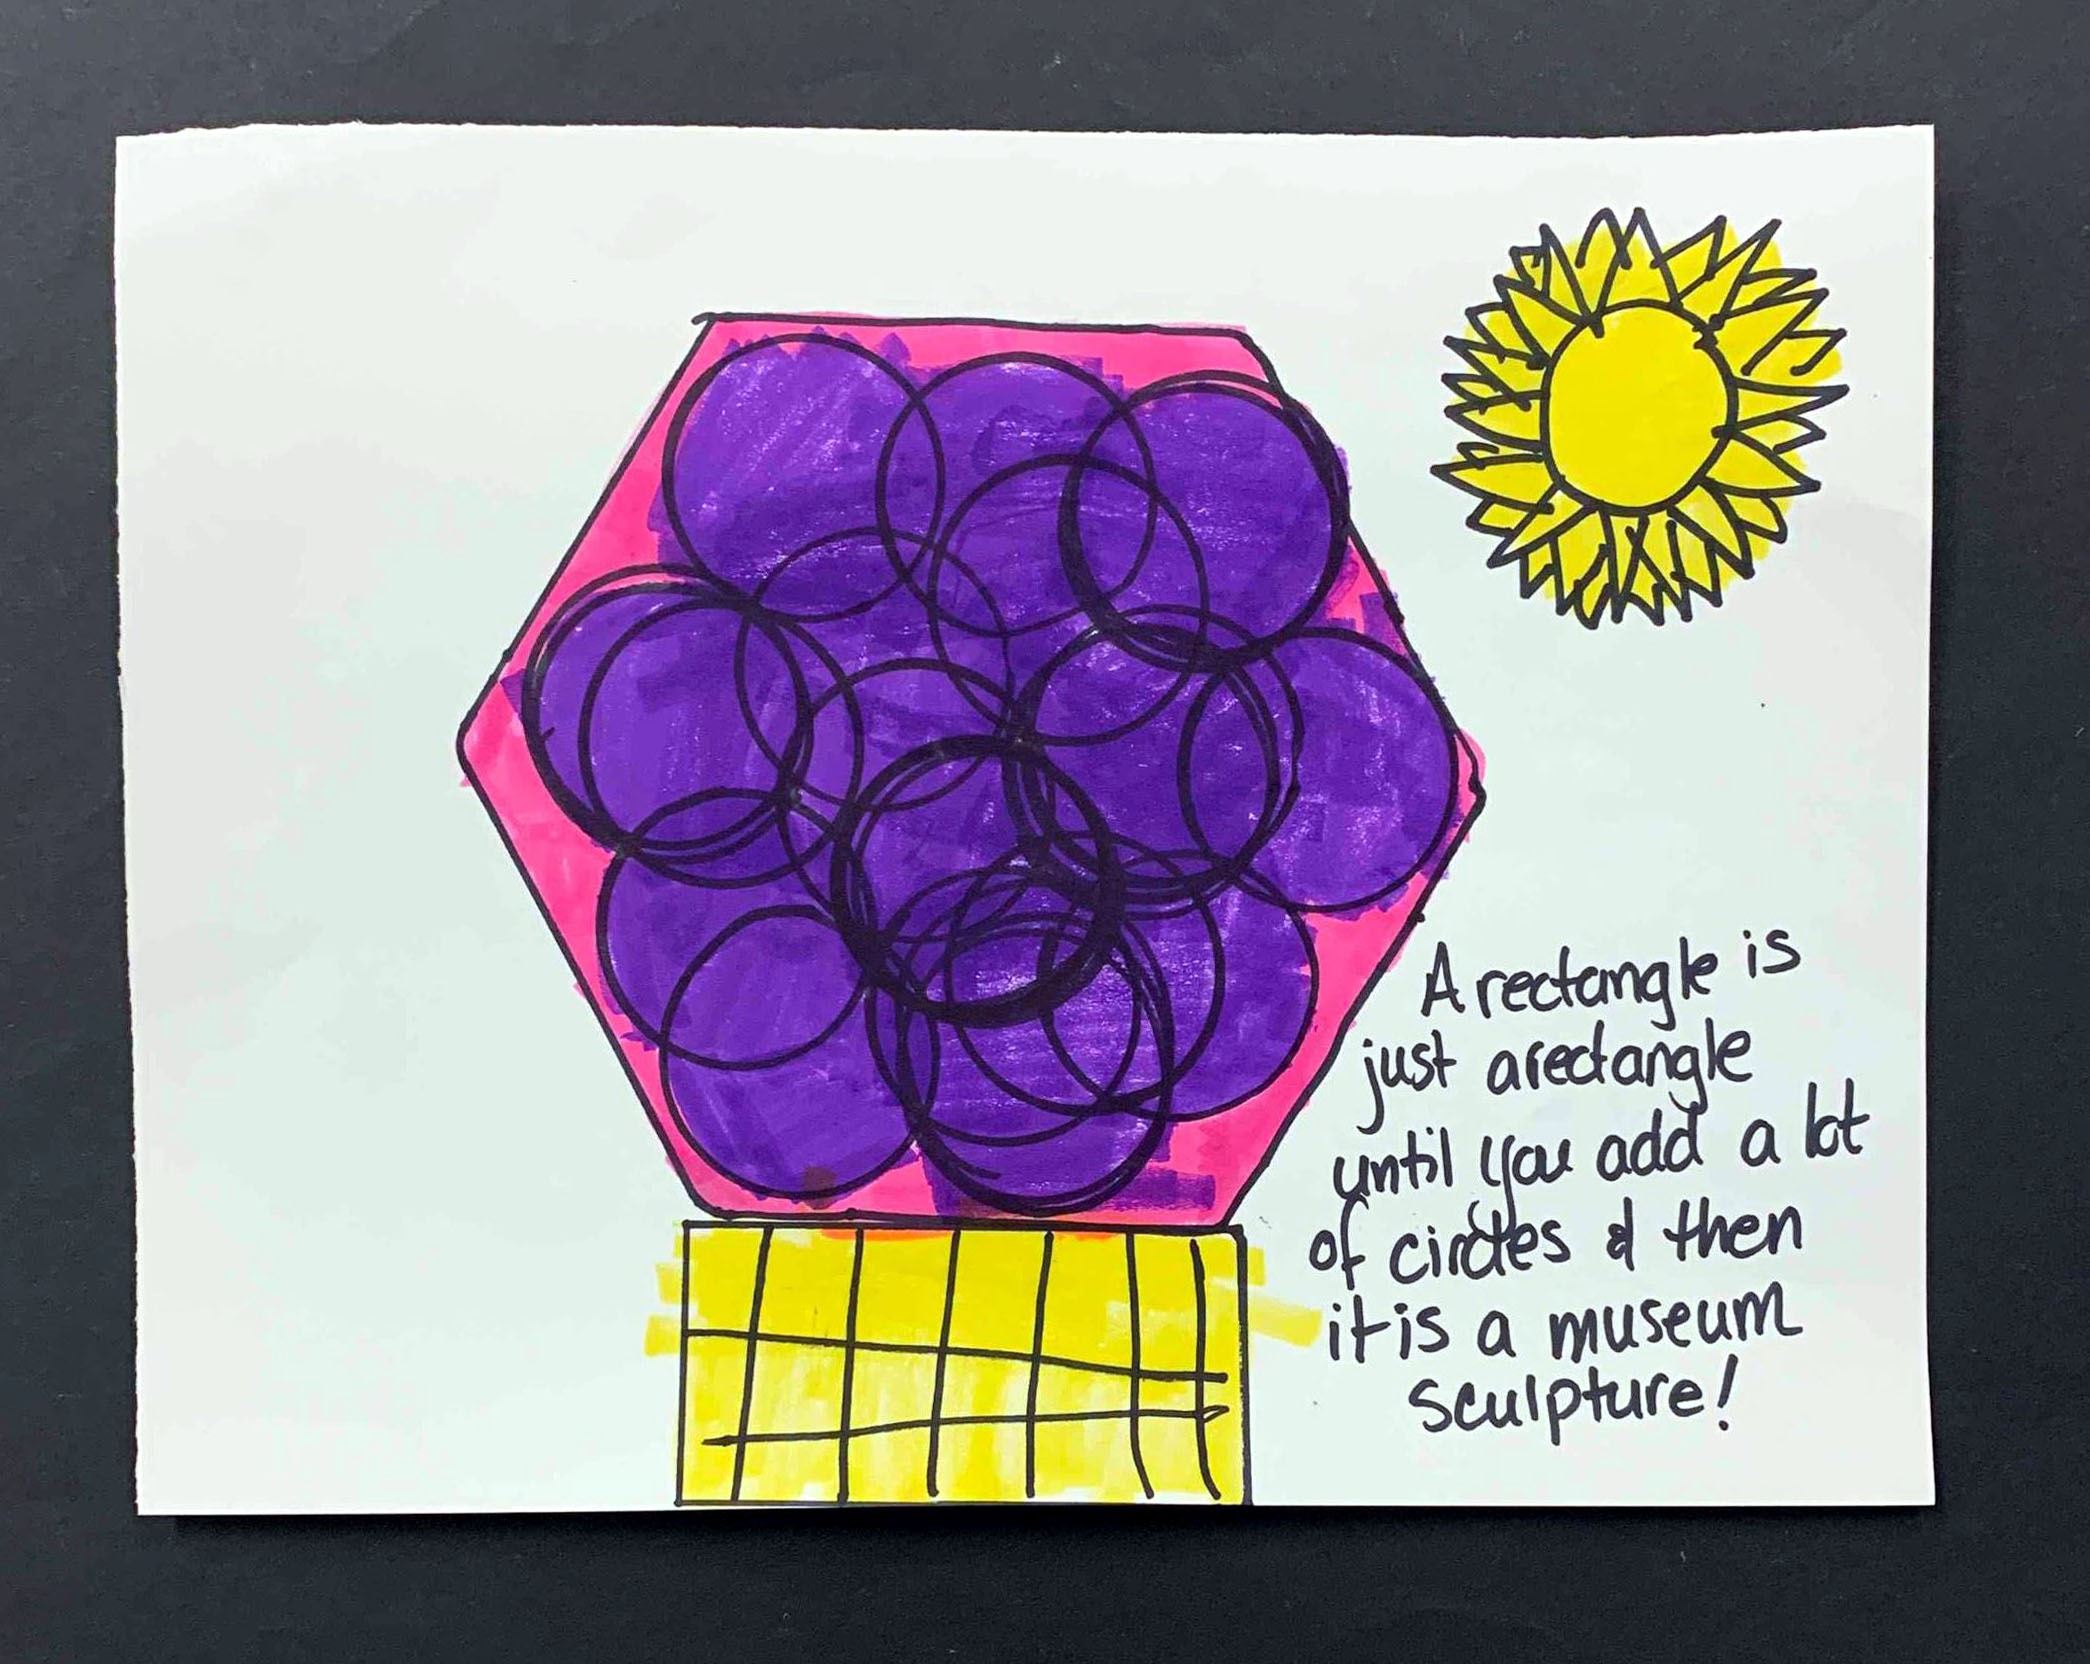 A rectangle is
just a rectangle
until you add a lot
of circles & then
it is a museum
sculpture!